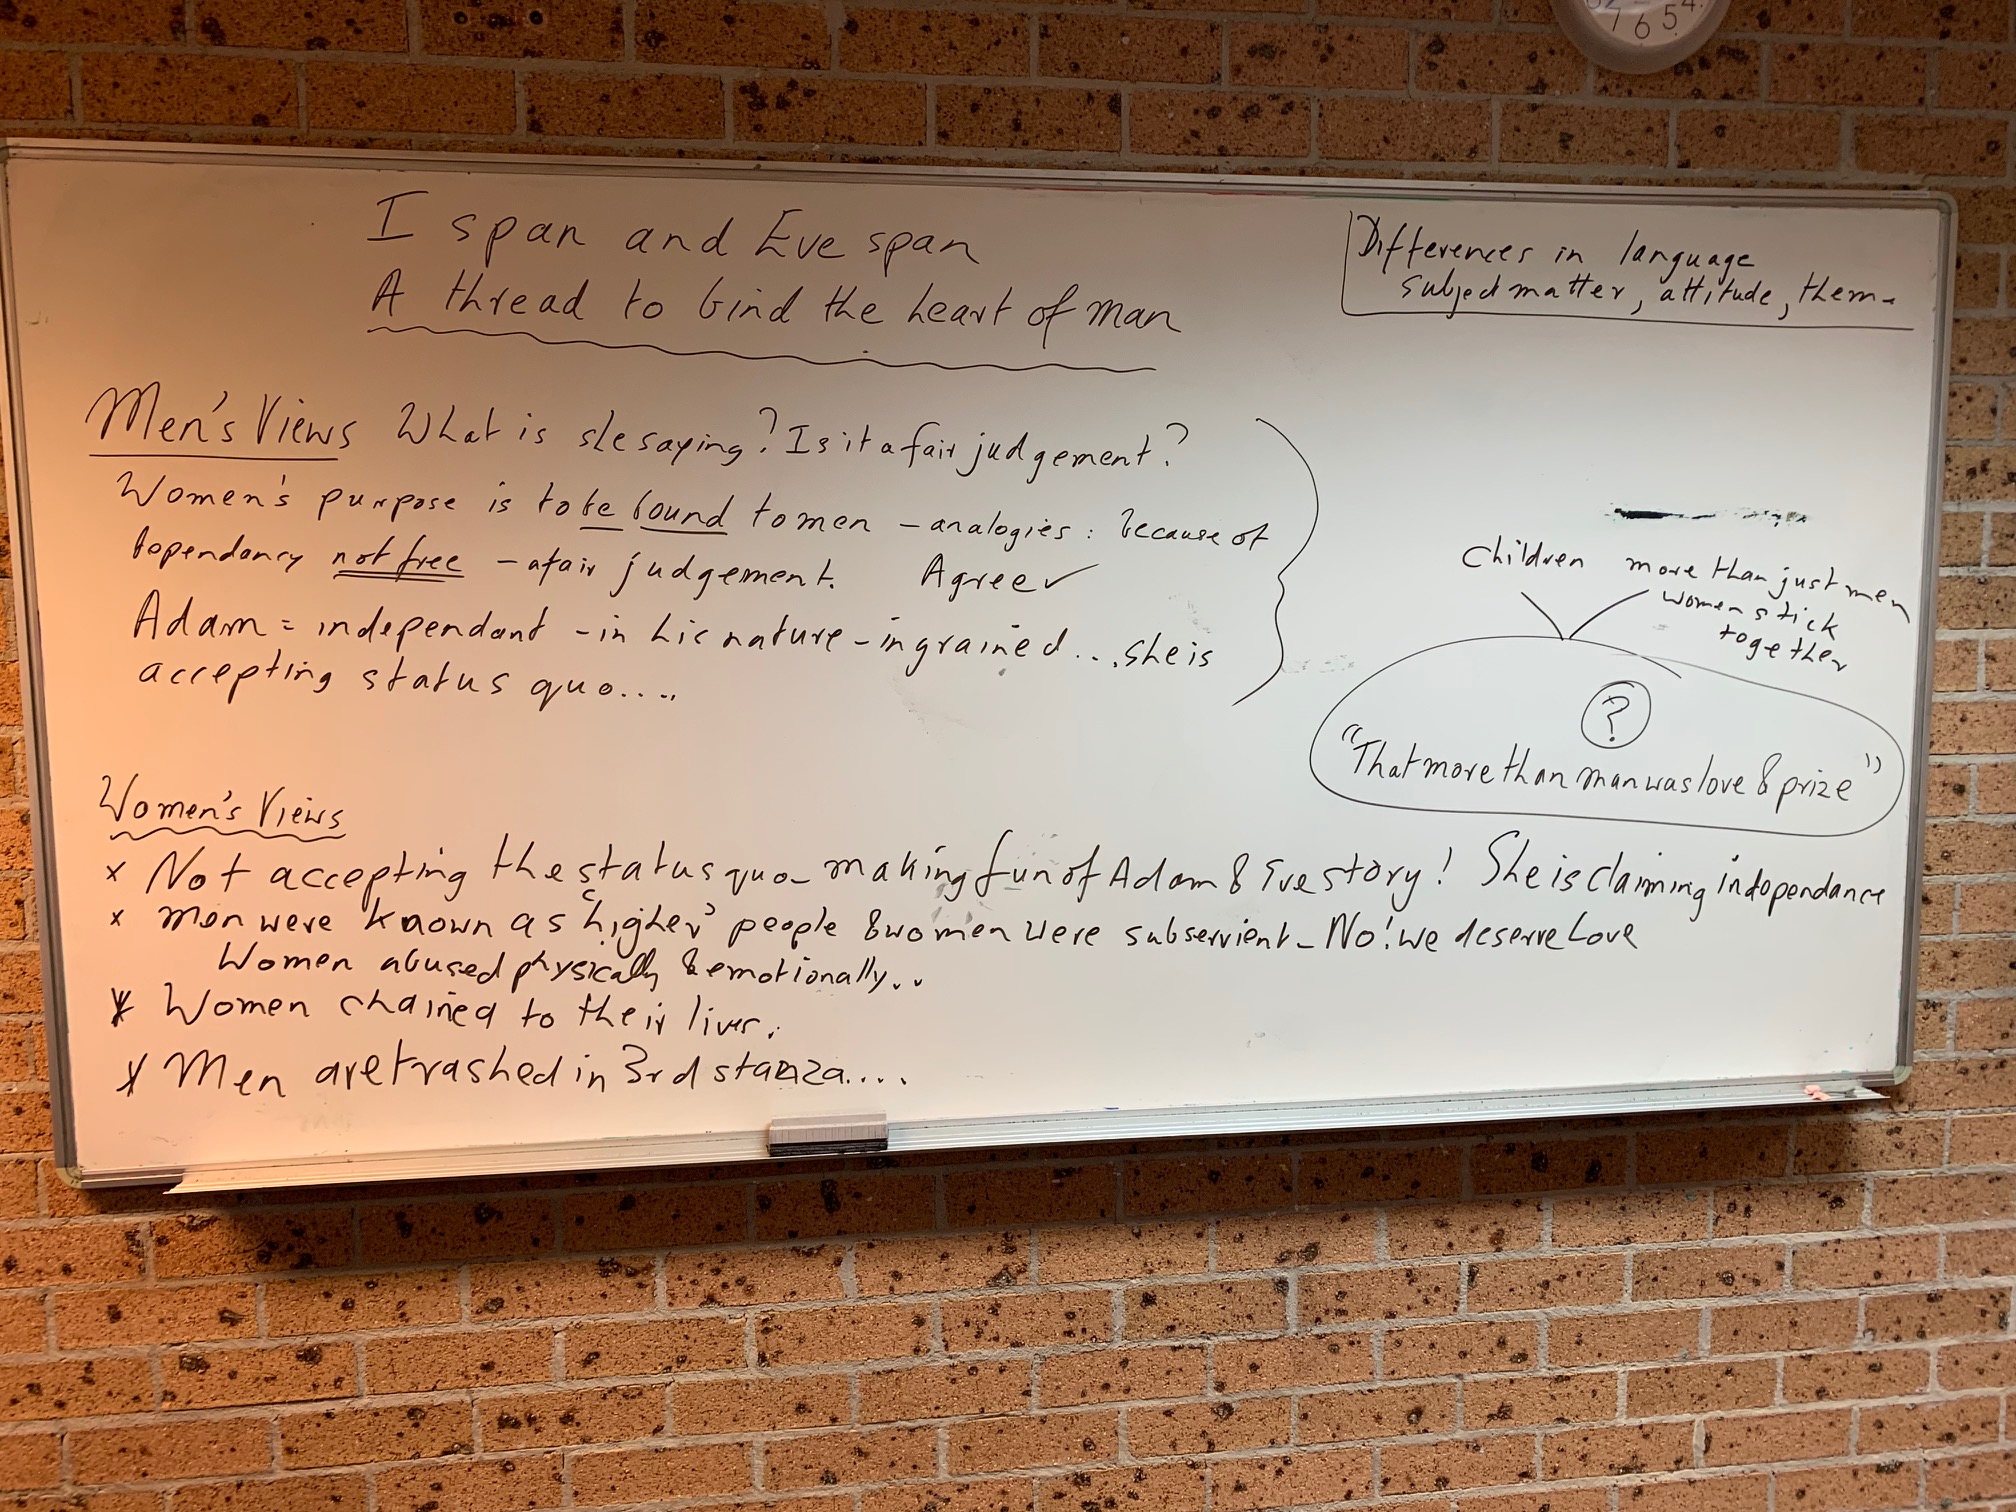 I span and Eve span
A thread to bind the heart of man
Differences in language
subject matter, attitude, them-
Men's Views What is she saying? Is it a fair judgement?
Women's purpose is to be bound to men - analogies: because of
dependancy not free - a fair judgement. Agree ✓
Adam = independant - in his nature - ingrained... she is
accepting status quo....
Children more than just men
women stick
together
?
"That more than man was love & prize"
Women's Views
x Not accepting the status quo - making fun of Adam & Eve story! She is claiming independance
x men were known as 'higher' people & women were subservient - No! we deserve love
Women abused physically & emotionally..
* Women chained to their lives.
* Men are trashed in 3rd stanza....
7 6 5 4